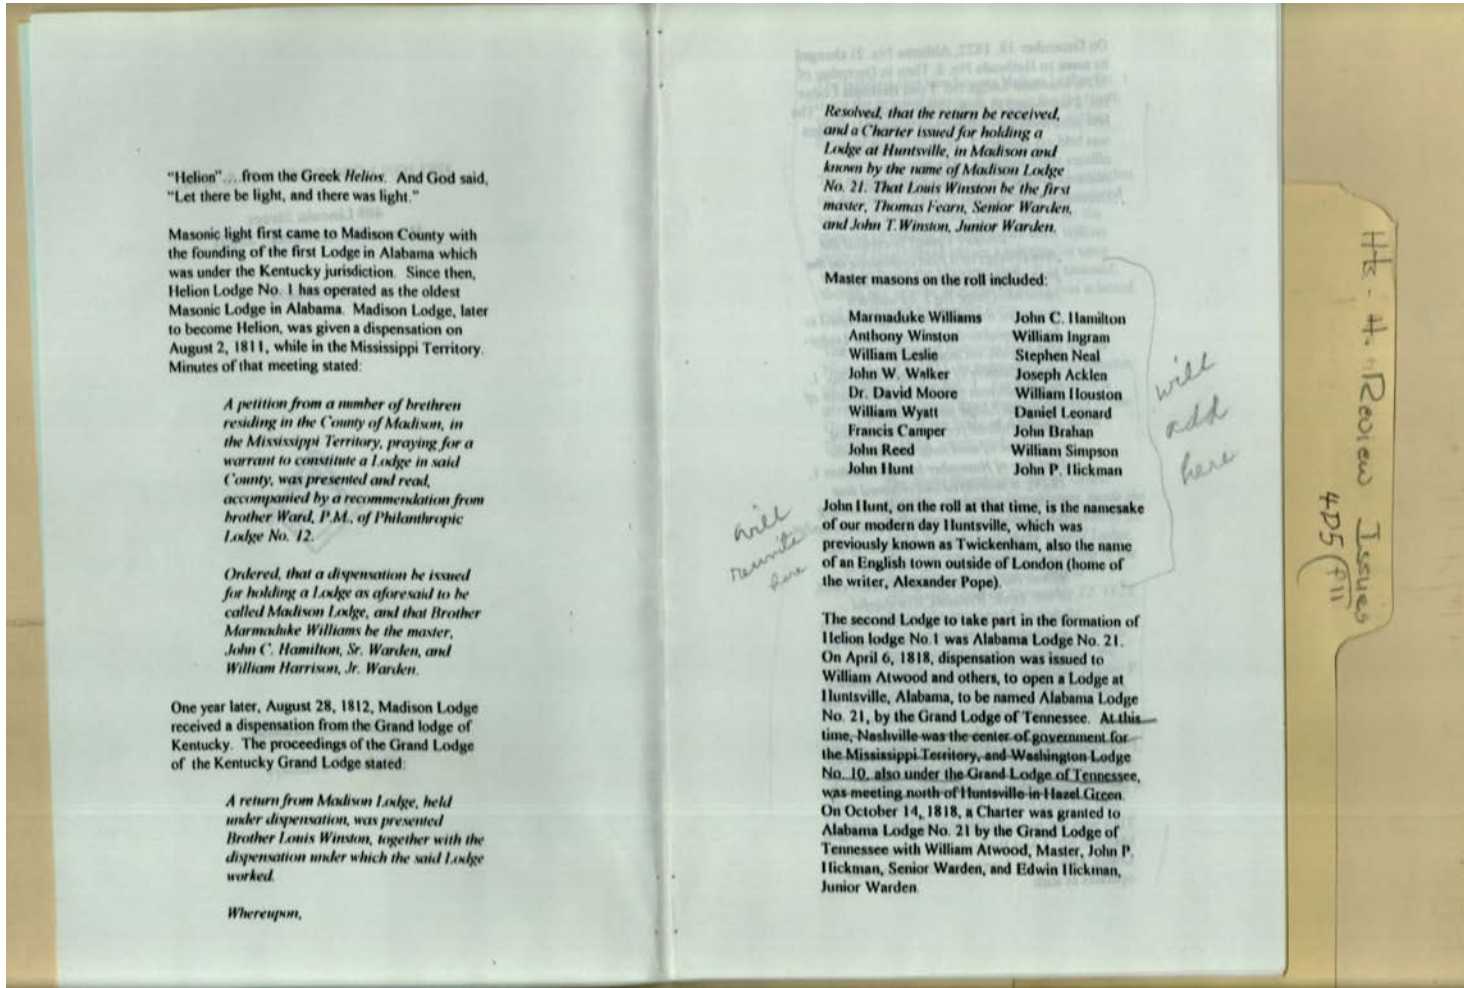 "Helion"... from the Greek Helios. And God said,
"Let there be light, and there was light."
Masonic light first came to Madison County with
the founding of the first Lodge in Alabama which
was under the Kentucky jurisdiction. Since then,
Helion Lodge No. 1 has operated as the oldest
Masonic Lodge in Alabama. Madison Lodge, later
to become Helion, was given a dispensation on
August 2, 1811, while in the Mississippi Territory.
Minutes of that meeting stated:
A petition from a number of brethren
residing in the County of Madison, in
the Mississippi Territory, praying for a
warrant to constitute a Lodge in said
County, was presented and read,
accompanied by a recommendation from
brother Ward, P.M., of Philanthropic
Lodge No. 12.
Ordered, that a dispensation be issued
for holding a Lodge as aforesaid to be
called Madison Lodge, and that Brother
Marmaduke Williams be the master,
John C. Hamilton, Sr. Warden, and
William Harrison, Jr. Warden.
One year later, August 28, 1812, Madison Lodge
received a dispensation from the Grand lodge of
Kentucky. The proceedings of the Grand Lodge
of the Kentucky Grand Lodge stated:
A return from Madison Lodge, held
under dispensation, was presented
Brother Louis Winston, together with the
dispensation under which the said Lodge
worked.
Whereupon,
Resolved, that the return be received,
and a Charter issued for holding a
Lodge at Huntsville, in Madison and
known by the name of Madison Lodge
No. 21. That Louis Winston be the first
master, Thomas Fearn, Senior Warden,
and John T. Winston, Junior Warden.
Master masons on the roll included:
Marmaduke Williams John C. Hamilton
Anthony Winston William Ingram
William Leslie Stephen Neal
John W. Walker Joseph Acklen
Dr. David Moore William Houston
William Wyatt Daniel Leonard
Francis Camper John Brahan
John Reed William Simpson
John Hunt John P. Hickman
will
add
here
John Hunt, on the roll at that time, is the namesake
of our modern day Huntsville, which was
previously known as Twickenham, also the name
of an English town outside of London (home of
the writer, Alexander Pope).
will
rewrite
here
The second Lodge to take part in the formation of
Helion lodge No.1 was Alabama Lodge No. 21.
On April 6, 1818, dispensation was issued to
William Atwood and others, to open a Lodge at
Huntsville, Alabama, to be named Alabama Lodge
No. 21, by the Grand Lodge of Tennessee. At this
time, Nashville was the center of government for
the Mississippi Territory, and Washington Lodge
No. 10, also under the Grand Lodge of Tennessee,
was meeting north of Huntsville in Hazel Green.
On October 14, 1818, a Charter was granted to
Alabama Lodge No. 21 by the Grand Lodge of
Tennessee with William Atwood, Master, John P.
Hickman, Senior Warden, and Edwin Hickman,
Junior Warden.
Review Issues